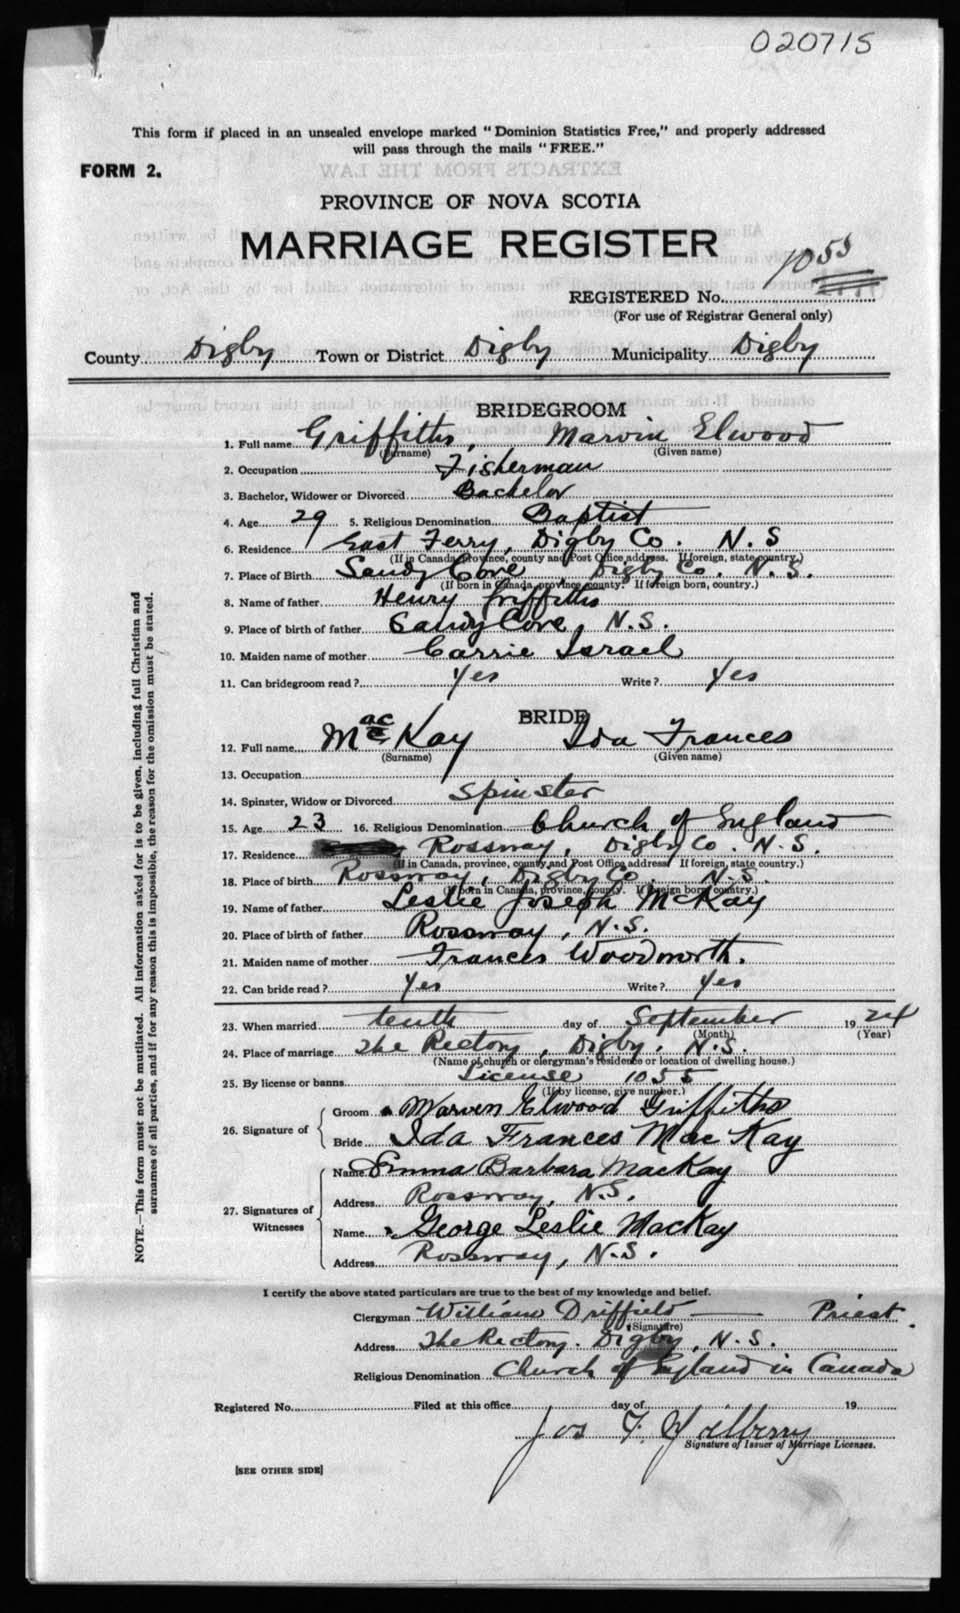 020715
This form if placed in an unsealed envelope marked "Dominion Statistics Free," and properly addressed
will pass through the mails "FREE."
FORM 2.
PROVINCE OF NOVA SCOTIA
MARRIAGE REGISTER
REGISTERED No. 1055
(For use of Registrar General only)
County Digby Town or District Digby Municipality Digby
BRIDEGROOM
1. Full name Griffiths, Marvin Elwood
(Surname) (Given name)
2. Occupation Fisherman
3. Bachelor, Widower or Divorced Bachelor
4. Age 29 5. Religious Denomination Baptist
6. Residence East Ferry, Digby Co. N.S
(If in Canada, province, county and Post Office address. If foreign, state country.)
7. Place of Birth Sandy Cove, Digby Co. N.S.
(If born in Canada, province, county. If foreign born, country.)
8. Name of father Henry Griffiths
9. Place of birth of father Sandy Cove, N.S.
10. Maiden name of mother Carrie Israel
11. Can bridegroom read? Yes Write? Yes
BRIDE
12. Full name MacKay Ida Frances
(Surname) (Given name)
13. Occupation
14. Spinster, Widow or Divorced Spinster
15. Age 23 16. Religious Denomination Church of England
17. Residence Rossway, Digby Co. N.S.
(If in Canada, province, county and Post Office address If foreign, state country.)
18. Place of birth Rossway, Digby Co. N.S.
(If born in Canada, province, county. If foreign born, country.)
19. Name of father Leslie Joseph McKay
20. Place of birth of father Rossway, N.S.
21. Maiden name of mother Frances Woodworth.
22. Can bride read? Yes Write? Yes
23. When married tenth day of September 1924
(Month) (Year)
24. Place of marriage The Rectory, Digby, N.S.
(Name of church or clergyman's residence or location of dwelling house.)
25. By license or banns License 1055
(If by license, give number.)
26. Signature of Groom Marven Elwood Griffiths
Bride Ida Frances Mac Kay
27. Signatures of Witnesses Name Emma Barbara MacKay
Address Rossway, N.S.
Name George Leslie MacKay
Address Rossway, N.S.
I certify the above stated particulars are true to the best of my knowledge and belief.
Clergyman William Driffield — Priest.
(Signature)
Address The Rectory. Digby, N.S.
Religious Denomination Church of England in Canada
Registered No. Filed at this office day of 19
Jos F.
Signature of Issuer of Marriage Licenses.
[SEE OTHER SIDE]
NOTE.—This form must not be mutilated. All information asked for is to be given, including full Christian and
surnames of all parties, and if for any reason this is impossible, the reason for the omission must be stated.